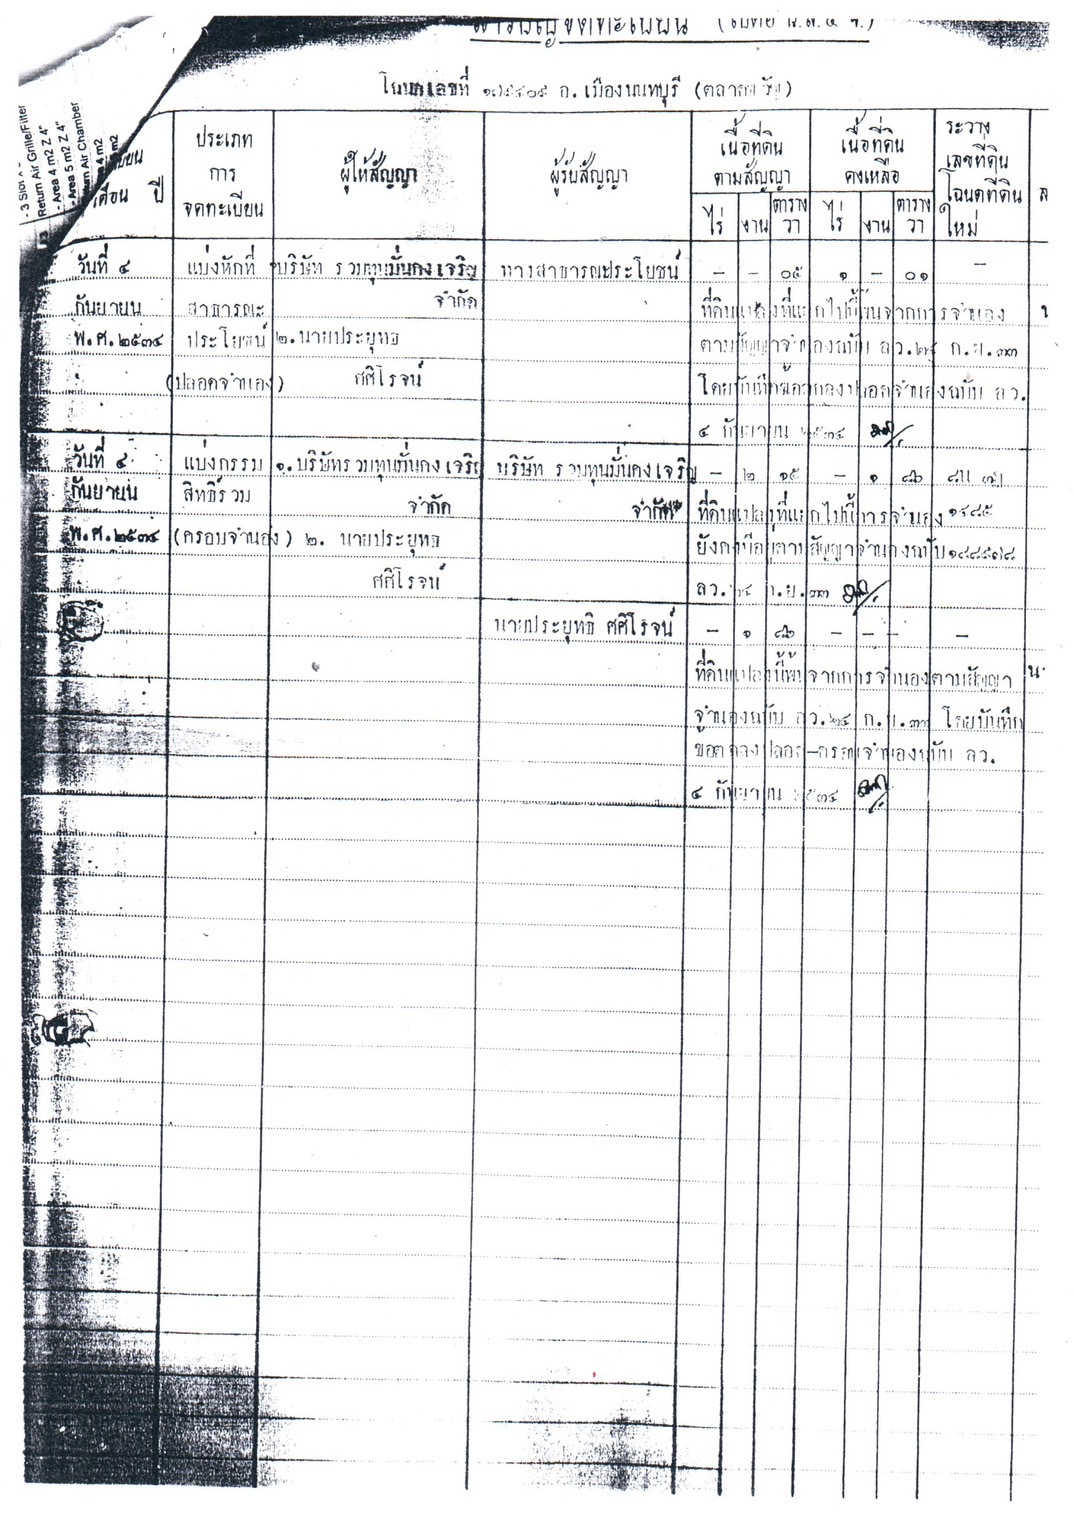 สารบัญจดทะเบียน
โฉนดเลขที่ อ.เมืองนนทบุรี (ตลาดขวัญ)
Return Air Grille/Filter
- Area 4 m2 Z 4"
- Area 5 m2 Z 4"
Air Chamber
4 m2
m2
ปี
ประเภท
การ
จดทะเบียน
ผู้ให้สัญญา
ผู้รับสัญญา
เนื้อที่ดิน
ตามสัญญา
เนื้อที่ดิน
คงเหลือ
ระวาง
เลขที่ดิน
โฉนดที่ดิน
ใหม่
ไร่ งาน ตาราง
วา
ไร่ งาน ตาราง
วา
วันที่ ๔ แบ่งหักที่ บริษัท รวมทุนมั่นคงเจริญ ทางสาธารณะประโยชน์ – – ๐๕ ๑ – ๐๑ –
กันยายน สาธารณะ จำกัด ที่ดินแปลงที่แยกไปนี้พ้นจากการจำนอง
พ.ศ.๒๕๓๔ ประโยชน์ ๒.นายประยุทธ ตามสัญญาจำนองฉบับ ลว.๒๔ ก.ย.๓๓
(ปลอดจำนอง) ศศิโรจน์ โดยบันทึกข้อตกลงปลอดจำนองฉบับ ลว.
๔ กันยายน ๒๕๓๔
วันที่ ๔ แบ่งกรรม ๑.บริษัทรวมทุนมั่นคงเจริญ บริษัท รวมทุนมั่นคงเจริญ – ๒ ๑๕ – ๑ ๘๖
กันยายน สิทธิ์รวม จำกัด จำกัด ที่ดินแปลงที่แยกไปนี้การจำนอง ๑๔๘๕
พ.ศ.๒๕๓๔ (ครอบจำนอง) ๒. นายประยุทธ ยังคงมีอยู่ตามสัญญาจำนองฉบับ
ศศิโรจน์ ลว.๒๔ ก.ย.๓๓
นายประยุทธิ ศศิโรจน์ – ๑ ๘๖ – – – –
ที่ดินแปลงนี้พ้นจากการจำนองตามสัญญา
จำนองฉบับ ลว.๒๔ ก.ย.๓๓ โดยบันทึก
ข้อตกลงปลอด จำนองฉบับ ลว.
๔ กันยายน ๒๕๓๔